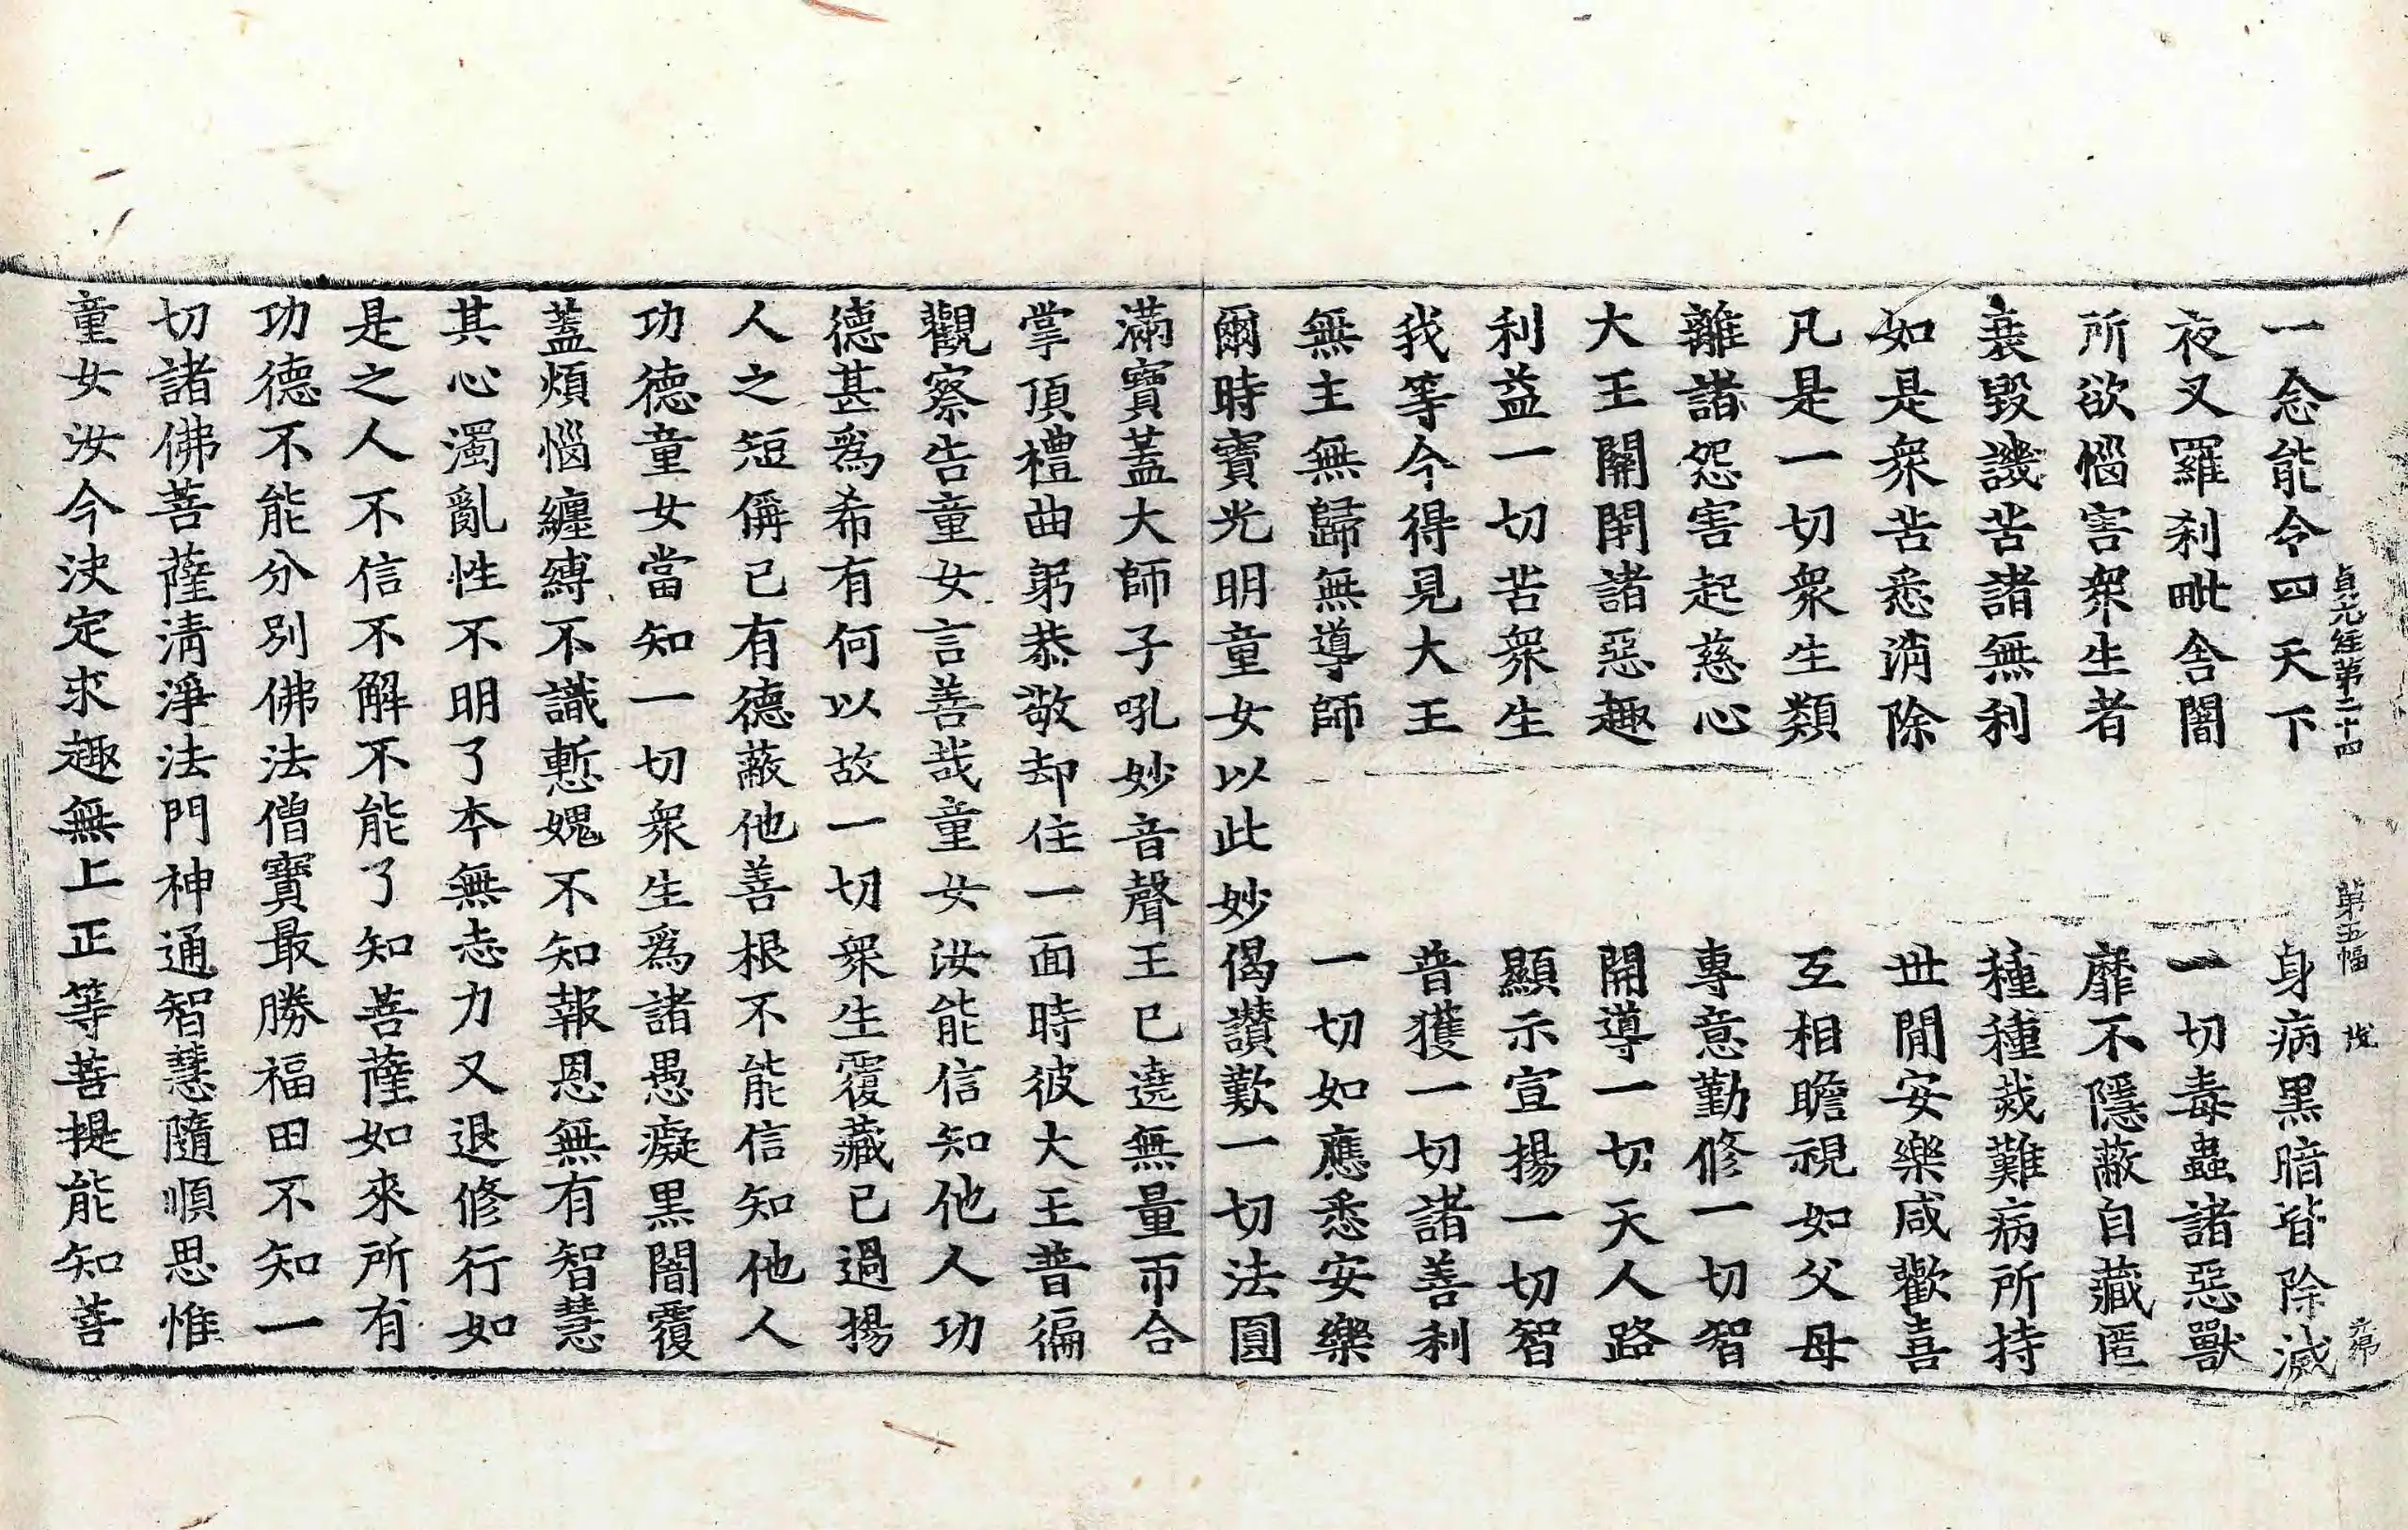 貞元經第二十四 第五幅 伐 元帛
一念能令四天下 身病黑暗皆除滅
夜叉羅刹毗舍闍 一切毒蟲諸惡獸
所欲惱害衆生者 靡不隱蔽自藏匿
衰毀譏苦諸無利 種種烖難病所持
如是衆苦悉消除 世閒安樂咸歡喜
凡是一切衆生類 互相瞻視如父母
離諸怨害起慈心 專意勤修一切智
大王關閉諸惡趣 開導一切天人路
利益一切苦衆生 顯示宣揚一切智
我等今得見大王 普獲一切諸善利
無主無歸無導師 一切如應悉安樂
爾時寶光明童女以此妙偈讃歎一切法圓
滿寶蓋大師子吼妙音聲王已遶無量帀合
掌頂禮曲躬恭敬却住一面時彼大王普徧
觀察告童女言善哉童女汝能信知他人功
德甚爲希有何以故一切衆生覆藏已過揚
人之短偁已有德蔽他善根不能信知他人
功德童女當知一切衆生爲諸愚癡黑闇覆
蓋煩惱纏縛不識慙媿不知報恩無有智慧
其心濁亂性不明了本無志力又退修行如
是之人不信不解不能了知菩薩如來所有
功德不能分別佛法僧寶最勝福田不知一
切諸佛菩薩淸淨法門神通智慧隨順思惟
童女汝今決定求趣無上正等菩提能知菩